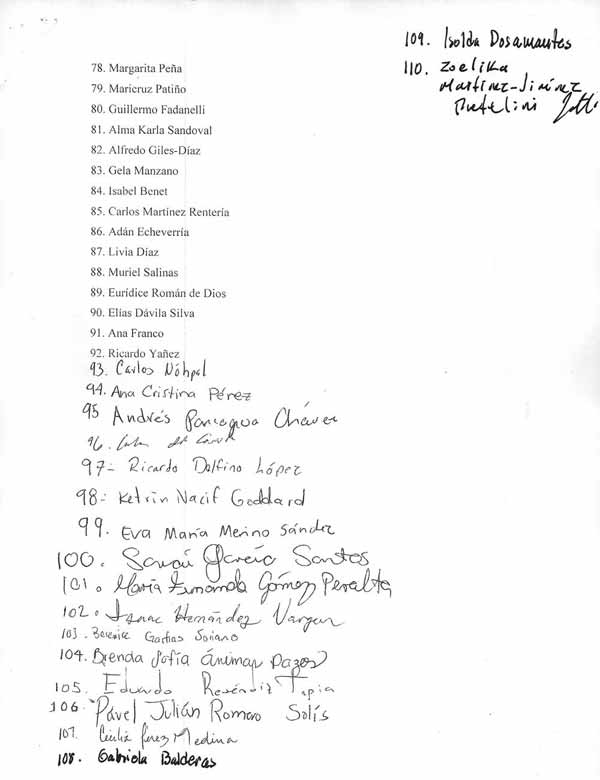 78. Margarita Peña
79. Maricruz Patiño
80. Guillermo Fadanelli
81. Alma Karla Sandoval
82. Alfredo Giles-Díaz
83. Gela Manzano
84. Isabel Benet
85. Carlos Martínez Rentería
86. Adán Echeverría
87. Livia Díaz
88. Muriel Salinas
89. Eurídice Román de Dios
90. Elías Dávila Silva
91. Ana Franco
92. Ricardo Yañez
93. Carlos Nóhpal
94. Ana Cristina Pérez
95 Andrés Paniagua Chávez
96.
97- Ricardo Delfino López
98- Ketrin Nacif Goddard
99. Eva María Merino Sánchez
100. Saraí García Santos
101. María Fernanda Gómez Peralta
102. Isaac Hernández Vargas
103. Berenice Garfias Soriano
104. Brenda Sofía Ánimas Pazos
105. Eduardo Reséndiz Tapia
106. Pavel Julián Romero Solís
107. Cecilia Pérez Medina
108. Gabriela Balderas
109. Isolda Dosamantes
110. Zoelika
Martínez-Jiménez